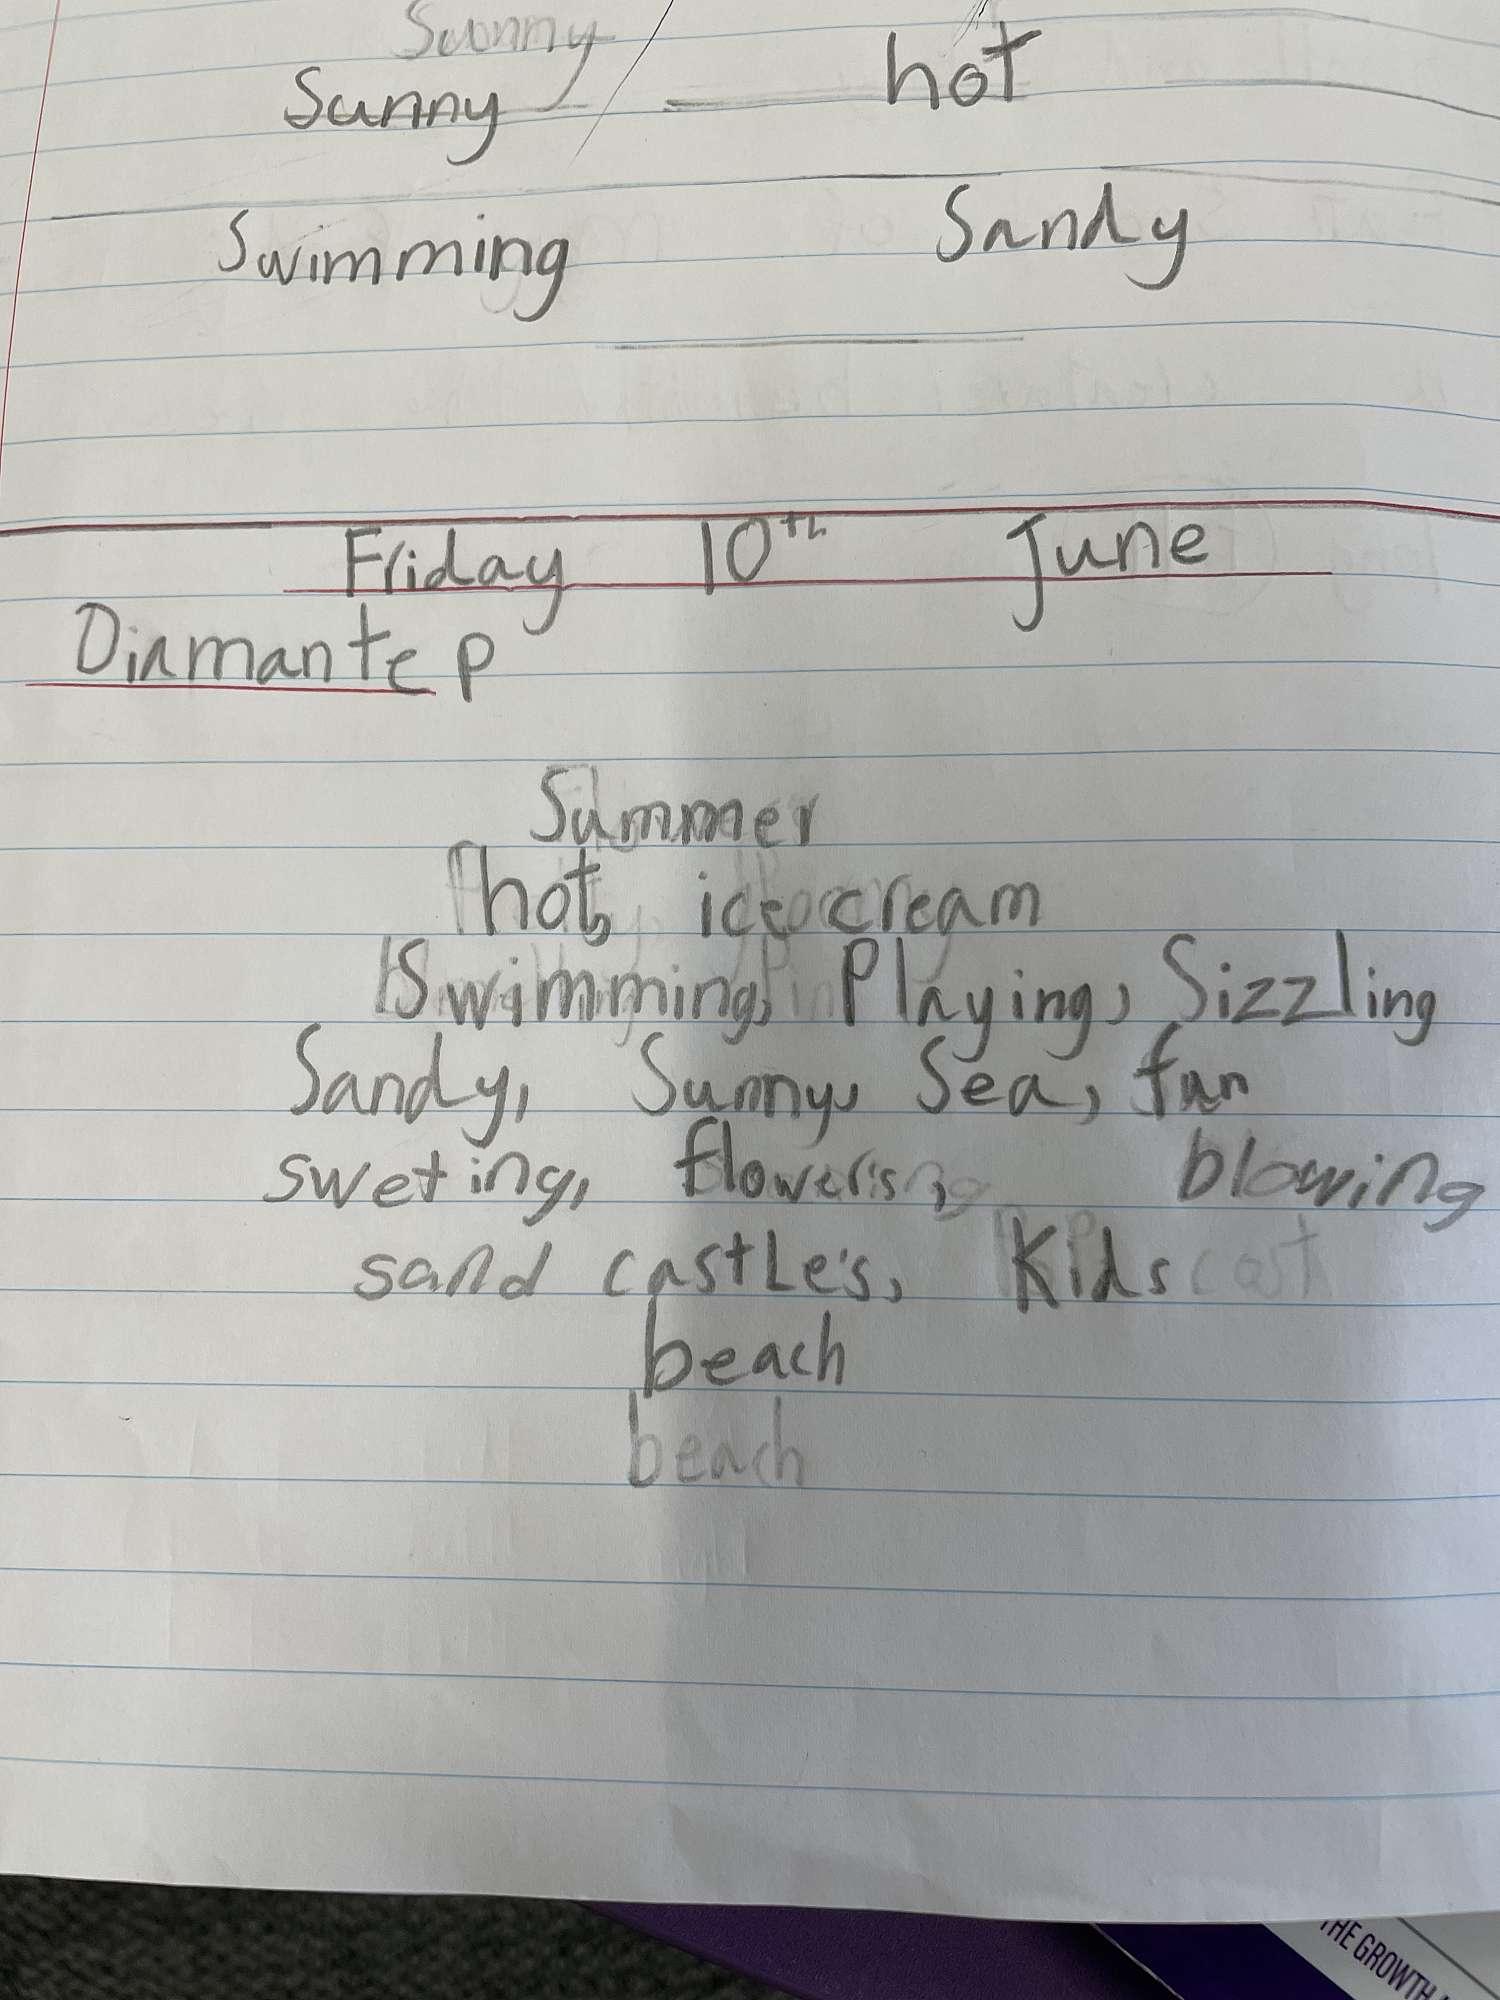 Sunny
Sunny hot
Swimming Sandy
Friday 10th June
Diamante P
Summer
hot, ice cream
Swimming, Playing, Sizzling
Sandy, Sunny, Sea, fun
sweting, flower's, blowing
sand castle's, Kids
beach
beach
THE GROWTH